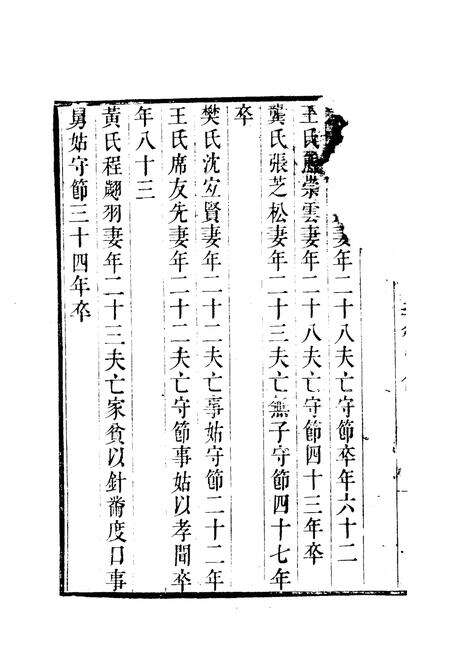 妻年二十八夫亡守節卒年六十二
王氏崇雲妻年二十八夫亡守節四十三年卒
龔氏張芝松妻年二十三夫亡無子守節四十七年
卒
樊氏沈宜賢妻年二十二夫亡事姑守節二十二年
王氏席友先妻年二十二夫亡守節事姑以孝聞卒
年八十三
黃氏程翽羽妻年二十三夫亡家貧以針黹度日事
舅姑守節三十四年卒